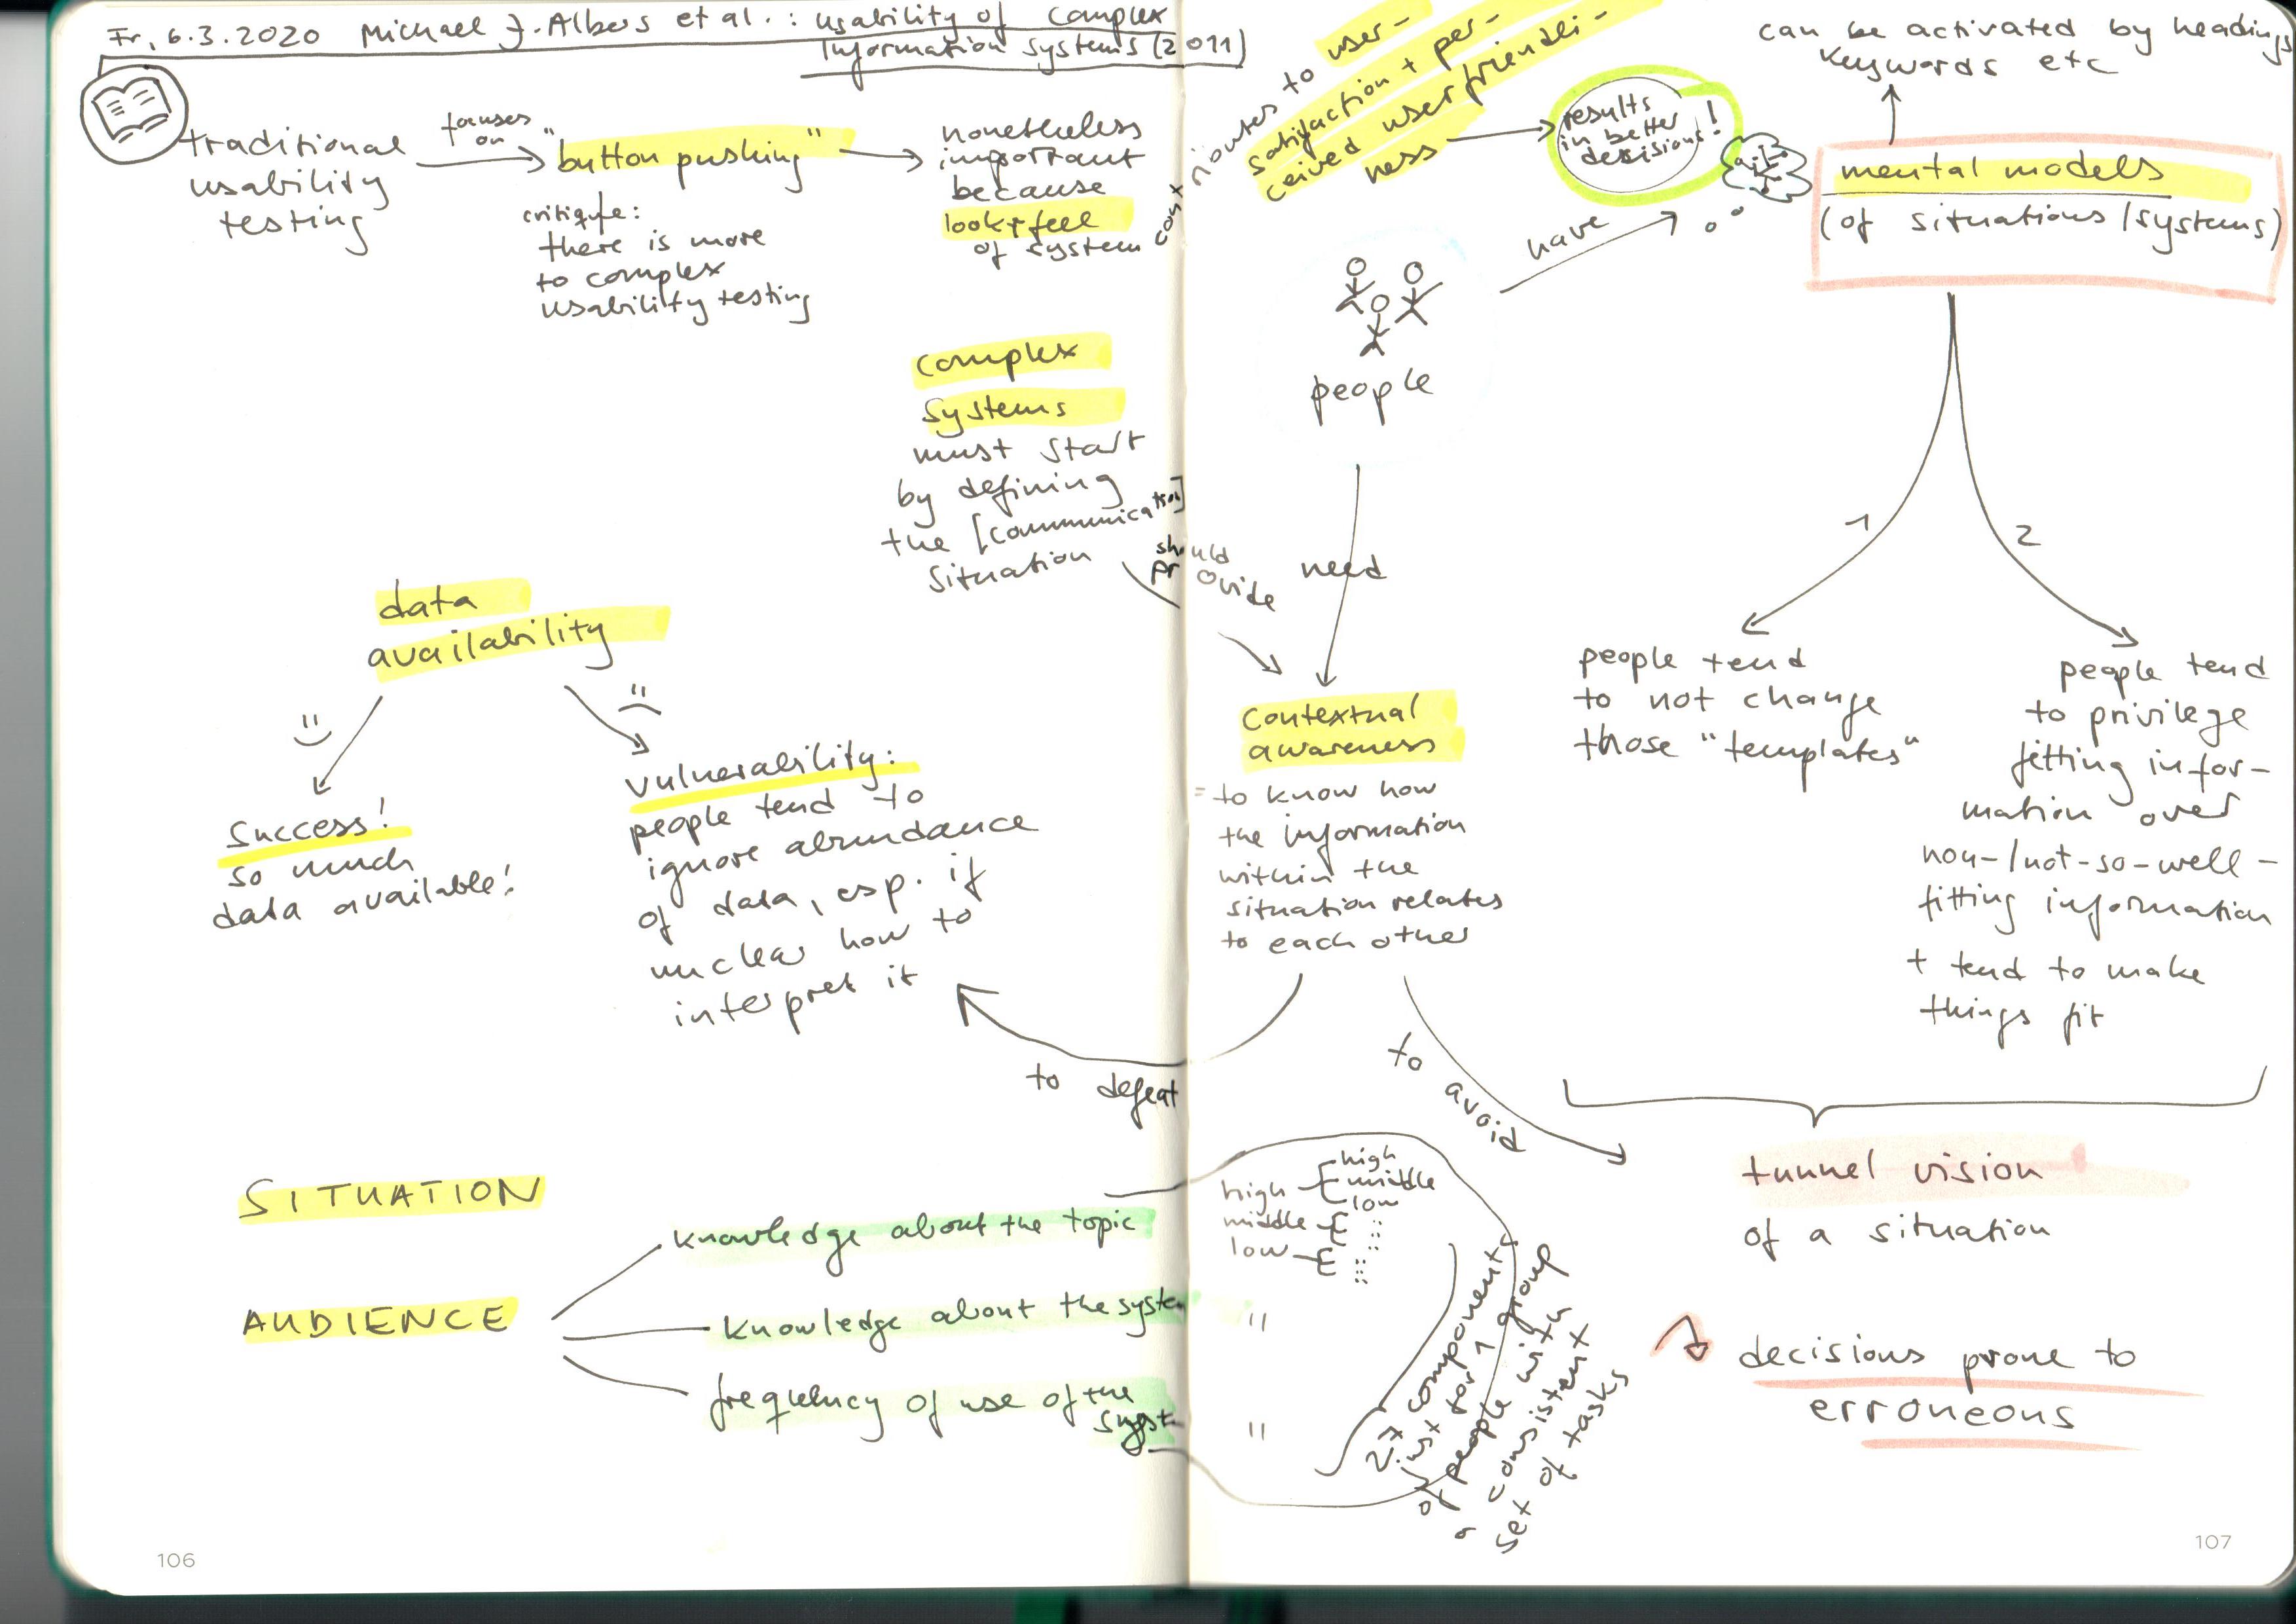 Fr, 6.3.2020 Michael J. Albers et al.: Usability of Complex
Information Systems (2011)
traditional
usability
testing
focuses
on
"button pushing"
critique:
there is more
to complex
usability testing
nonetheless
important
because
look+feel
of system
contributes to user-
satisfaction + per-
ceived userfriendli-
ness
results
in better
decisions!
can be activated by headings
keywords etc
mental models
(of situations/systems)
have
people
complex
systems
must start
by defining
the [communication]
situation
should
provide
need
data
availability
success!
so much
data available!
vulnerability:
people tend to
ignore abundance
of data, esp. if
unclear how to
interpret it
contextual
awareness
= to know how
the information
within the
situation relates
to each other
to defeat
to avoid
1
2
people tend
to not change
those "templates"
people tend
to privilege
fitting infor-
mation over
non-/not-so-well-
fitting information
+ tend to make
things fit
tunnel vision
of a situation
decisions prone to
erroneous
SITUATION
AUDIENCE
knowledge about the topic
knowledge about the system
frequency of use of the
syst
high
high
middle
low
middle
low
"
"
27 components
just for 1 group
of people with
a consistent
set of tasks
106
107